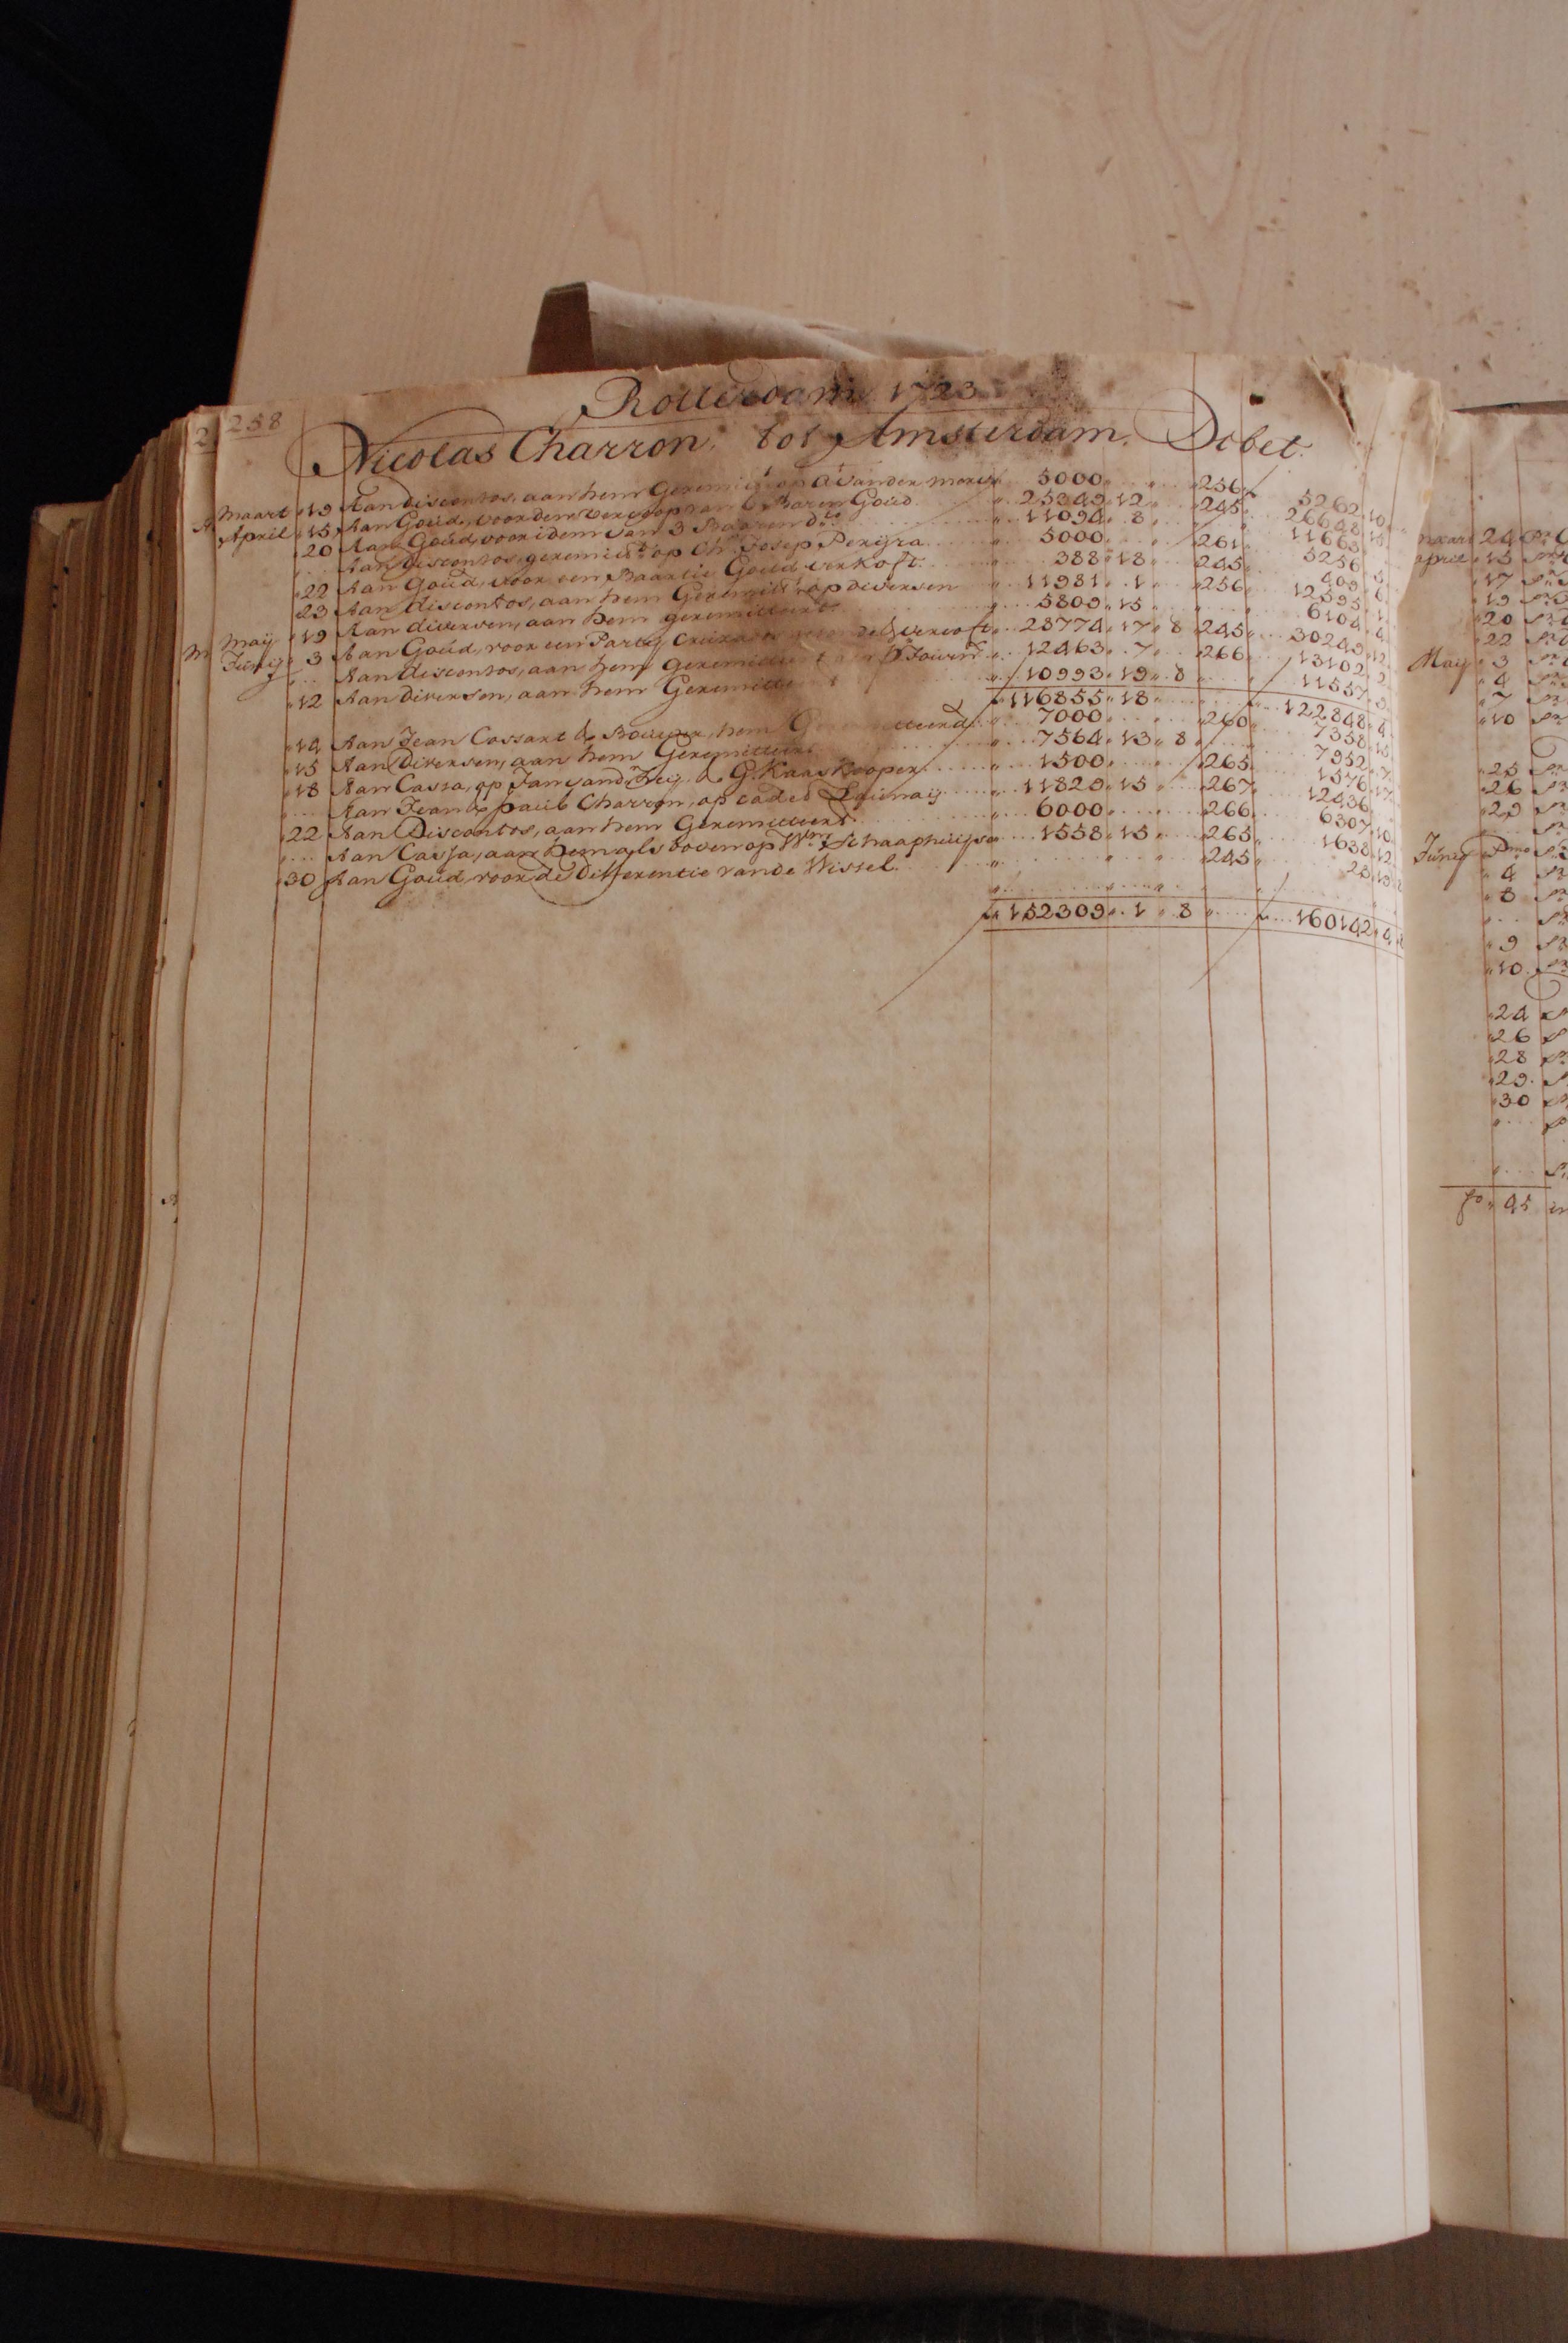 258
Rotterdam 1723
Nicolas Charron, tot Amsterdam. Debet.
Maart 19 Aan discontos, aan hem Geremitt. op vander 5000 256 5262 10
April 15 Aan Goud, voor den vercoop van 6 Baren Goud 25349 12 245 26648 15
20 Aan Goud, voor idem van 3 Baaren dto 11094 8 11663
Aan discontos, geremitt. op Josep Perijra 5000 261 5256
22 Aan Goud, voor een Baartie Goud verkoft 388 18 245 409 6
23 Aan discontos, aan hem Geremitt. op diversen 11981 1 256 12595 1
May 19 Aan diversen, aan hem geremitteert 5809 15 6104 4
Junij 3 Aan Goud, voor een Partij vercoft 28774 17 8 245 30249 12
Aan discontos, aan hem Geremitteert 12463 7 266 13102
12 Aan diversen, aan hem Geremitteert 10993 19 8 11557
116855 18 122848 4
14 Aan Jean Cossart & Bouwer, hem 7000 260 7358 15
15 Aan Diversen, aan hem Geremitteert 7564 13 8 7952 7
18 Aan Cassa, op Jan & G. Kaaskooper 1500 265 1576 17
Aan Jean & paulb Charron, op 11829 15 267 12436
22 Aan Discontos, aan hem Geremitteert 6000 266 6307 10
Aan Cassa, aan hem als boven op Wm Schaaphuijse 1558 15 265 1638 12
30 Aan Goud, voor de differentie vande Wissel 245 23 13
152309 1 8 160142 4
maart 24
april 15
17
19
20
22
May 3
4
7
10
25
26
29
Junij Pmo
4
8
9
10
24
26
28
29
30
fo 45